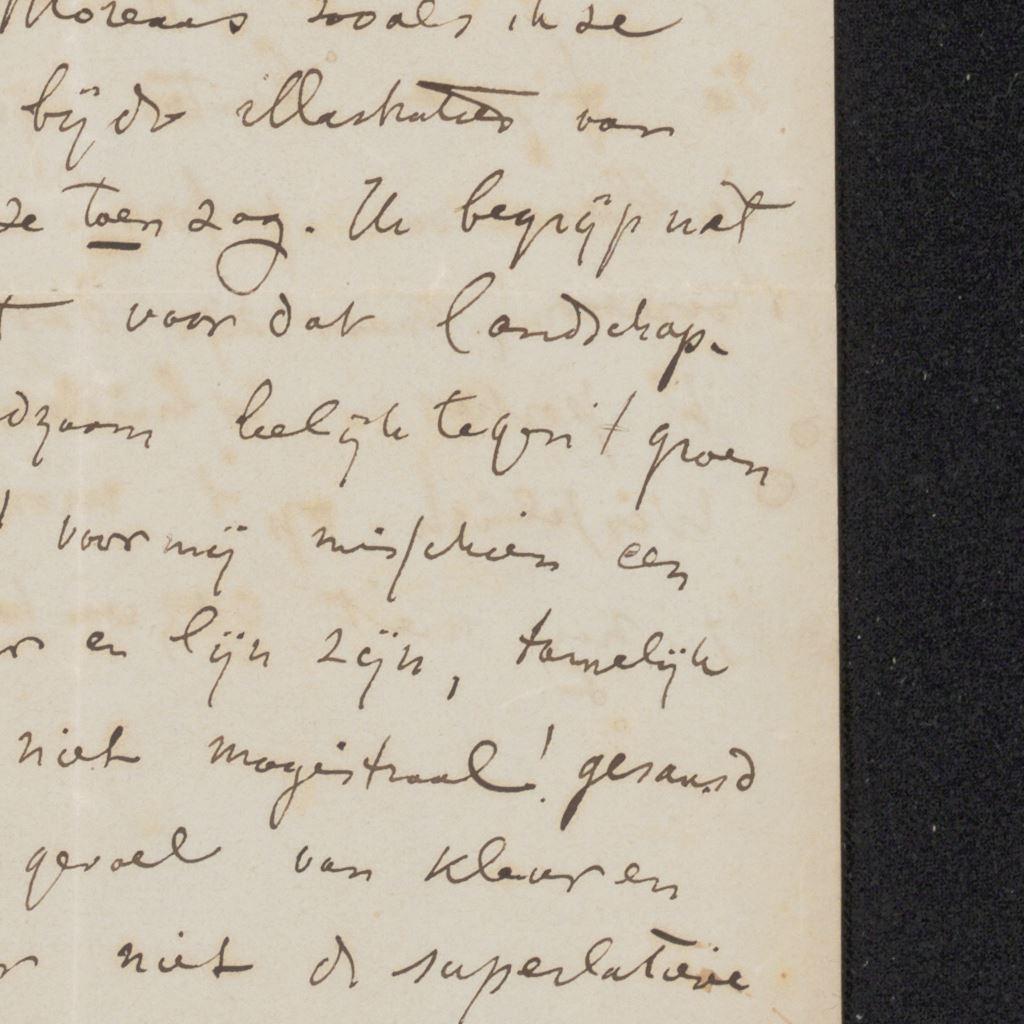 Moreaus zooals ik ze
bij de illustraties van
ze toen zag. Un begrijp wat
voor dat landschap.
dzaam lelijk tegen 't groen
voor mij misschien een
en lijn zijn, tamelijk
niet magistraal! gesausd
gevoel van kleur en
niet de superlatieve